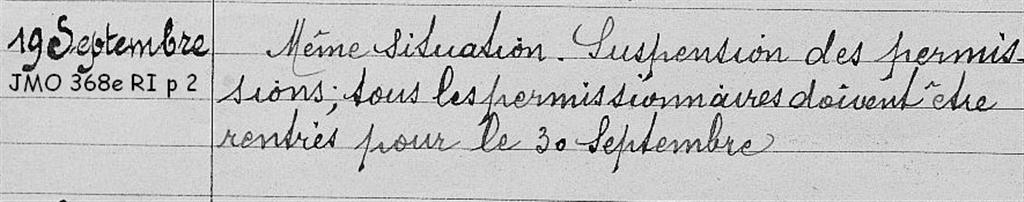 19 Septembre
JMO 368e RI p 2
Même situation. Suspension des permis-
sions; tous les permissionnaires doivent être
rentrés pour le 30 Septembre